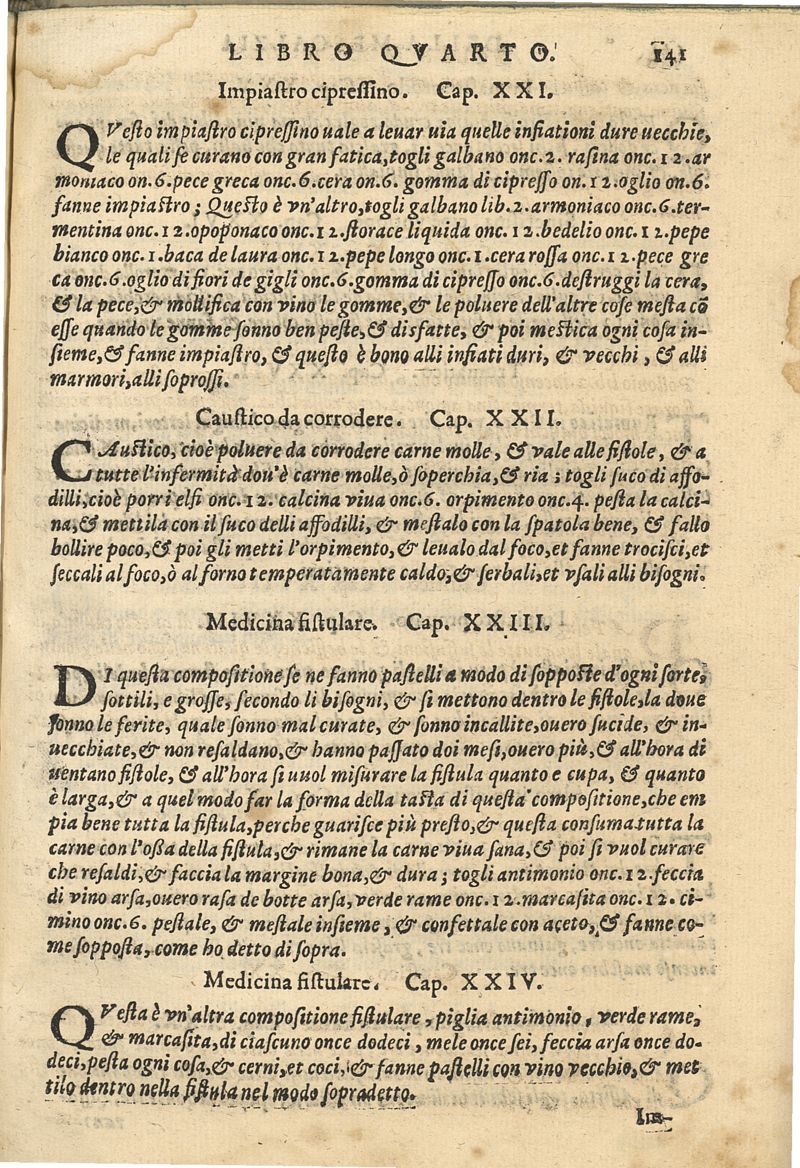 LIBRO QVARTO. 141
Impiastro cipressino. Cap. XXI.
QVesto impiastro cipressino uale a leuar uia quelle infiationi dure uecchie,
le quali se curano con gran fatica, togli galbano onc. 2. rasina onc. 12. ar
moniaco on. 6. pece greca onc. 6. cera on. 6. gomma di cipresso on. 12. oglio on. 6.
fanne impiastro; Questo è vn'altro, togli galbano lib. 2. armoniaco onc. 6. ter-
mentina onc. 12. opoponaco onc. 12. storace liquida onc. 12. bedelio onc. 12. pepe
bianco onc. 1. baca de laura onc. 12. pepe longo onc. 1. cera rossa onc. 12. pece gre
ca onc. 6. oglio di fiori de gigli onc. 6. gomma di cipresso onc. 6. destruggi la cera,
& la pece, & mollifica con vino le gomme, & le poluere dell'altre cose mesta cō
esse quando le gomme sonno ben peste, & disfatte, & poi mestica ogni cosa in-
sieme, & fanne impiastro, & questo è bono alli infiati duri, & vecchi, & alli
marmori, alli soprossi.
Caustico da corrodere. Cap. XXII.
CAustico, cioè poluere da corrodere carne molle, & vale alle fistole, & a
tutte l'infermità dou'è carne molle, ò soperchia, & ria; togli suco di affo-
dilli, cioè porri elsi onc. 12. calcina viua onc. 6. orpimento onc. 4. pesta la calci-
na, & mettila con il suco delli affodilli, & mestalo con la spatola bene, & fallo
bollire poco, & poi gli metti l'orpimento, & leualo dal foco, et fanne trocisci, et
seccali al foco, ò al forno temperatamente caldo, & serbali, et vsali alli bisogni.
Medicina fistulare. Cap. XXIII.
DI questa compositione se ne fanno pastelli a modo di sopposte d'ogni sorte,
sottili, e grosse, secondo li bisogni, & si mettono dentro le fistole, la doue
sonno le ferite, quale sonno mal curate, & sonno incallite, ouero sucide, & in-
uecchiate, & non resaldano, & hanno passato doi mesi, ouero più, & all'hora di
uentano fistole, & all'hora si vuol misurare la fistula quanto e cupa, & quanto
è larga, & a quel modo far la forma della tasta di questa compositione, che em
pia bene tutta la fistula, perche guarisce più presto, & questa consuma tutta la
carne con l'ossa della fistula, & rimane la carne viua sana, & poi si vuol curare
che resaldi, & faccia la margine bona, & dura; togli antimonio onc. 12. feccia
di vino arsa, ouero rasa de botte arsa, verde rame onc. 12. marcasita onc. 12. ci-
mino onc. 6. pestale, & mestale insieme, & confettale con aceto, & fanne co-
me sopposta, come ho detto di sopra.
Medicina fistulare. Cap. XXIV.
QVesta è vn'altra compositione fistulare, piglia antimonio, verde rame,
& marcasita, di ciascuno once dodeci, mele once sei, feccia arsa once do-
deci, pesta ogni cosa, & cerni, et coci, & fanne pastelli con vino vecchio, & met
tilo dentro nella fistula nel modo sopradetto.
Im-